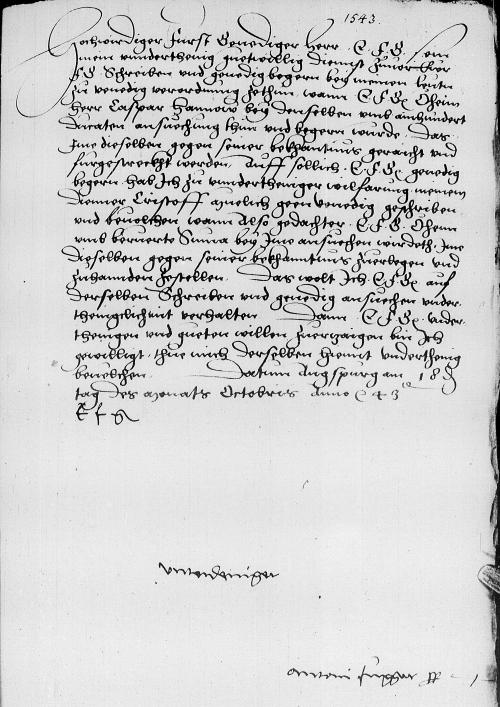 1543.
Hochwirdiger Furst Genediger Herr. E.F.G. sein
mein underthenig guetwillig dienst zuvor. Eur
F.G. Schreiben und genedig begern bey meinen leuten
zu Venedig verordnung zethun, wann E.F.G. Oheim
Herr Caspar Hannow bey denselben umb ainhundert
ducaten ansuechung thun und begern wurde, das
Ime dieselben gegen seiner bekhantnus geraicht und
furgestreckht werden. Auff sollich E.F.G. genedig
begern hab Ich zu undertheniger wilfarung meinem
diener Cristoff geen Venedig geschriben
und bevolchen, wann Also gedachter E.F.G. Oheim
umb beruerte Suma bey Ime ansuechen wirdeth, Ime
dieselben gegen seiner bekhanntnus zuerlegen und
zuhannden zestellen. Das wolt Ich E.F.G. auf
derselben Schreiben und genedig ansuechen under-
thenigclichait verhalten. Dann E.F.G. under-
thenigen und gueten willen zuerzaigen bin Ich
gewilligt, thue mich derselben hiemit underthenig
bevelchen. Datum Augspurg am 18
tag des Monats Octobris Anno 43
E F G
undertheniger
Antoni Fugger